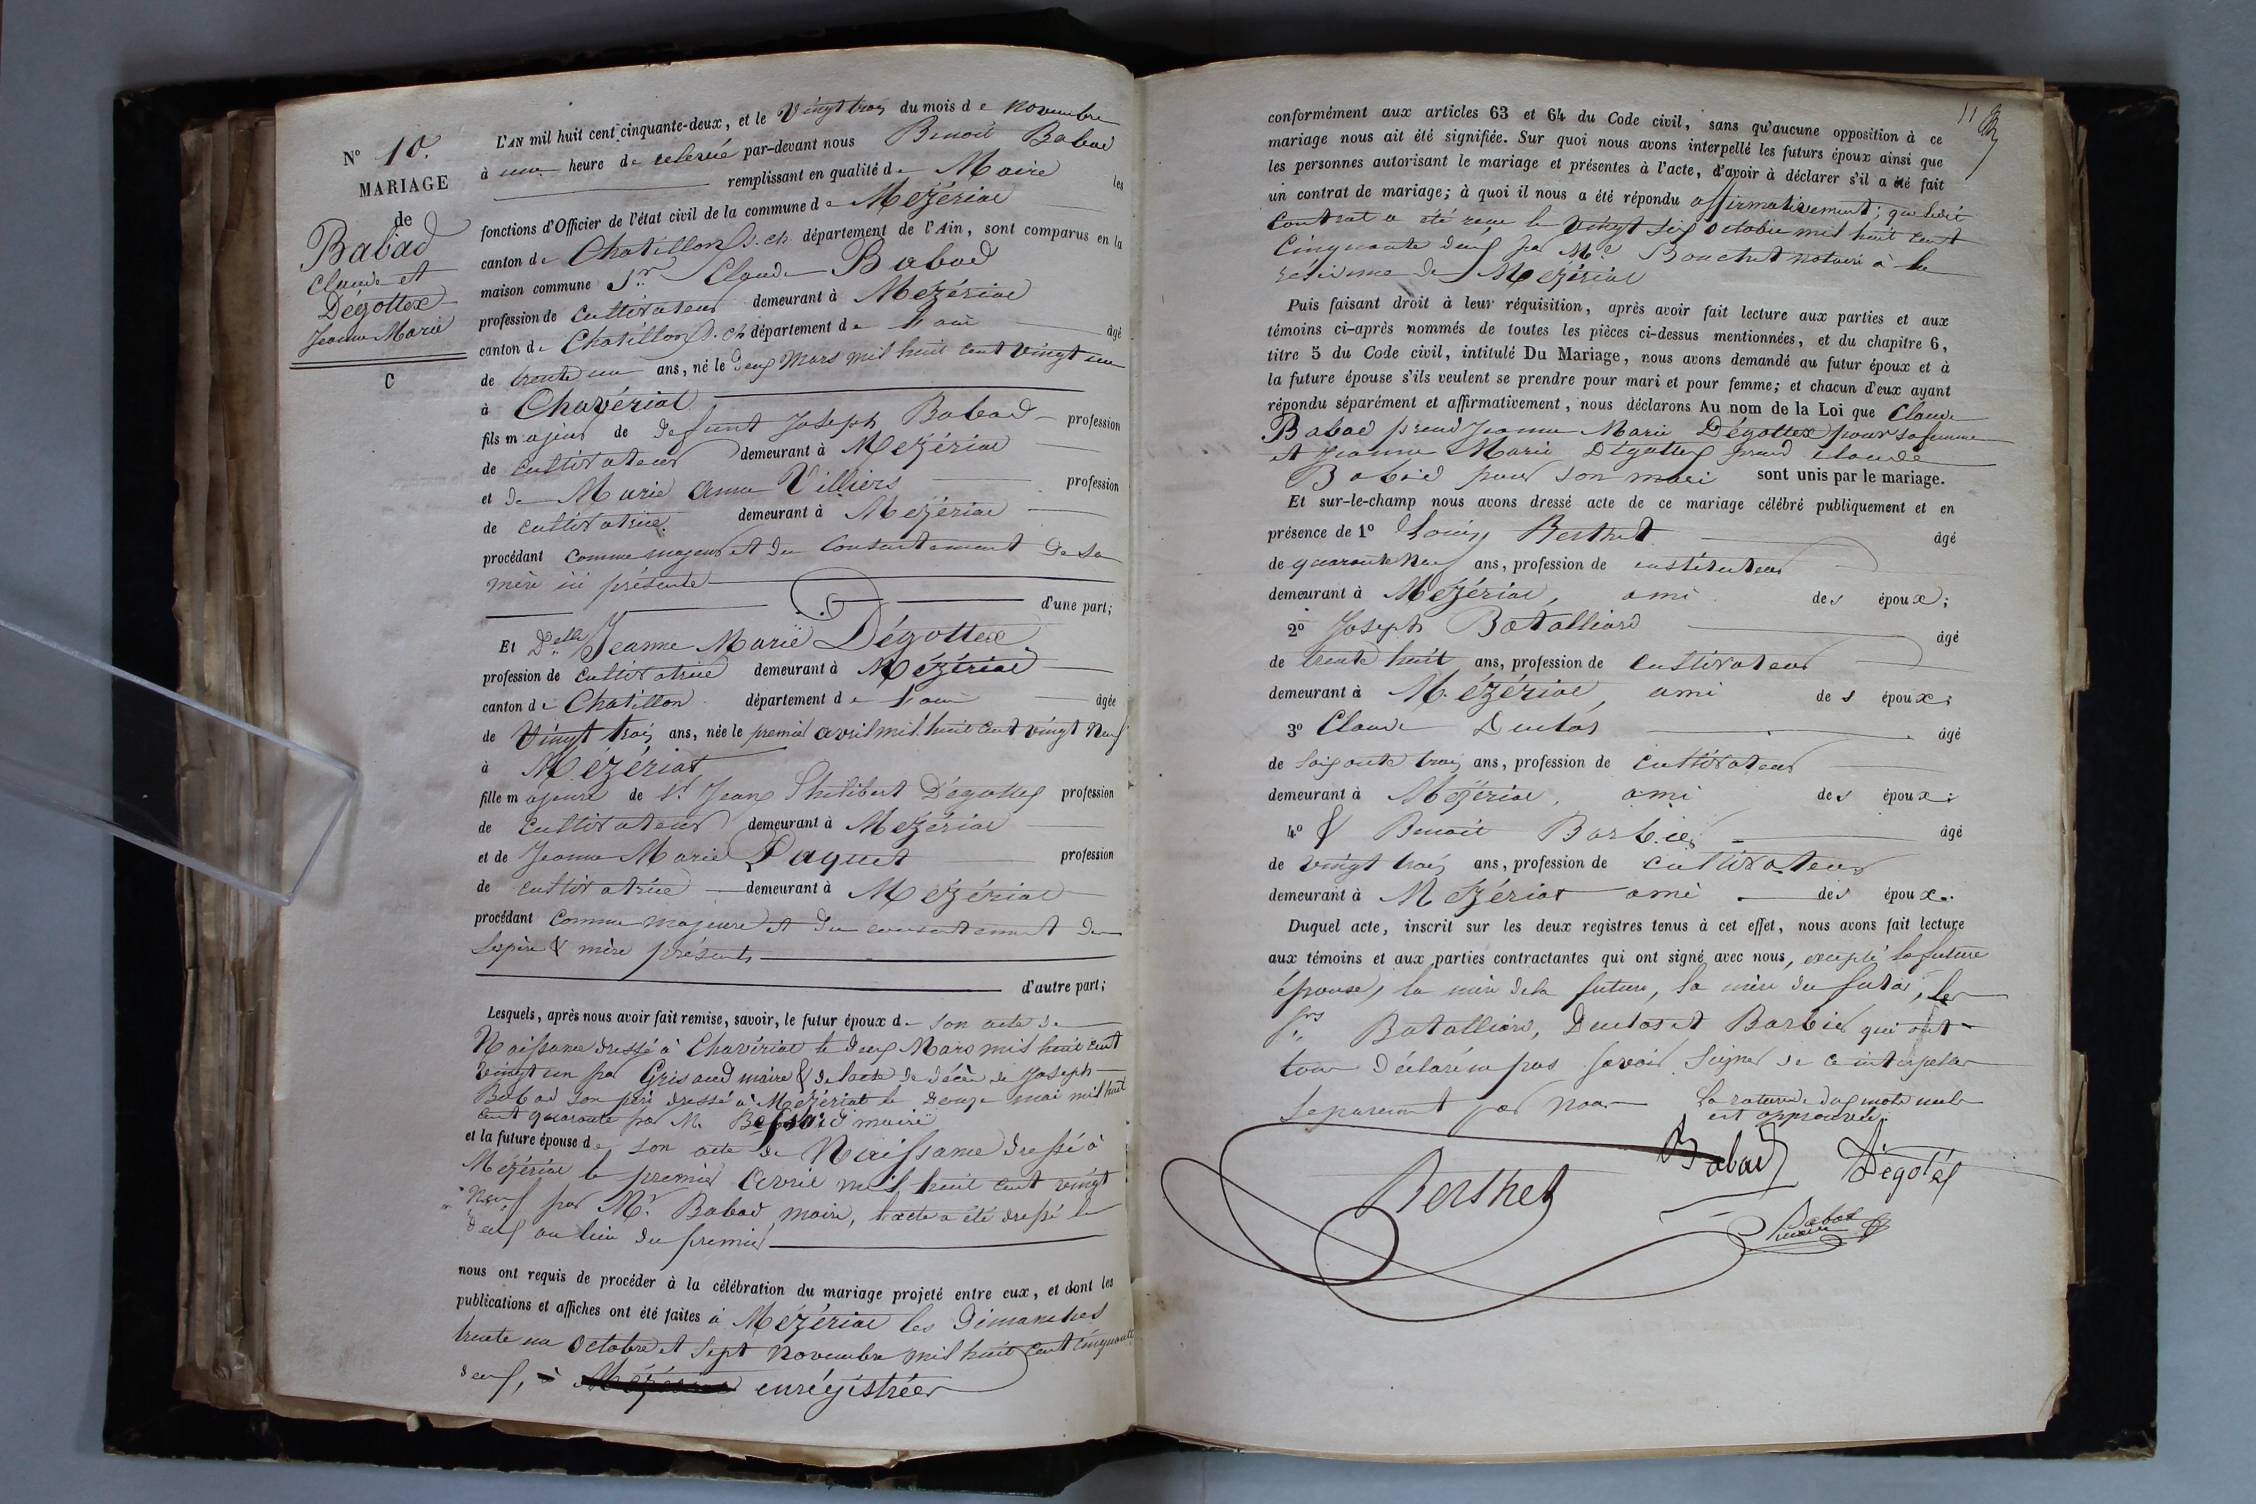 N° 10.
MARIAGE
de
Babad
Claude et
Dégottex
Jeanne Marie
C
L'AN mil huit cent cinquante-deux, et le Vingt trois du mois de novembre
à une heure de relevée par-devant nous Benoit Babad
remplissant en qualité de Maire les
fonctions d'Officier de l'état civil de la commune de Mézériat
canton de Chatillon s. ch. département de l'Ain, sont comparus en la
maison commune Sr. Claude Babad
profession de cultivateur demeurant à Mézériat
canton de Chatillon s. ch département de l'ain âgé
de trente un ans, né le deux Mars mil huit cent vingt un
à Chavériat
fils majeur de defunt Joseph Babad profession
de cultivateur demeurant à Mézériat
et de Marie Anne Villiers profession
de cultivatrice demeurant à Mézériat
procédant comme majeur et du consentement de sa
mère ici présente
d'une part;
Et Delle Jeanne Marie Dégottex
profession de cultivatrice demeurant à Mézériat
canton de Chatillon département de l'ain âgée
de Vingt trois ans, née le premier avril mil huit cent vingt neuf
à Mézériat
fille majeure de St Jean Philibert Dégottex profession
de cultivateur demeurant à Mézériat
et de Jeanne Marie Paquet profession
de cultivatrice demeurant à Mézériat
procédant comme majeure et du consentement de
ses père & mère présents
d'autre part;
Lesquels, après nous avoir fait remise, savoir, le futur époux de son acte de
Naissance dressé à Chavériat le deux Mars mil huit cent
vingt un par Grisaud maire & de l'acte de décès de Joseph
Babad son père dressé à Mézériat le douze mai mil huit
cent quarante par M. maire
et la future épouse de son acte de Naissance dressé à
Mézériat le premier Avril mil huit cent vingt
neuf par Mr. Babad maire, l'acte a été dressé le
deux au lieu du premier
nous ont requis de procéder à la célébration du mariage projeté entre eux, et dont les
publications et affiches ont été faites à Mézériat les Dimanches
trente un Octobre et sept Novembre mil huit cent cinquante
deux, enrégistrées
11
conformément aux articles 63 et 64 du Code civil, sans qu'aucune opposition à ce
mariage nous ait été signifiée. Sur quoi nous avons interpellé les futurs époux ainsi que
les personnes autorisant le mariage et présentes à l'acte, d'avoir à déclarer s'il a été fait
un contrat de mariage; à quoi il nous a été répondu affirmativement; que ledit
contrat a été reçu le Vingt six octobre mil huit cent
cinquante deux par Me Bouchet notaire à la
residence de Mézériat
Puis faisant droit à leur réquisition, après avoir fait lecture aux parties et aux
témoins ci-après nommés de toutes les pièces ci-dessus mentionnées, et du chapitre 6,
titre 5 du Code civil, intitulé Du Mariage, nous avons demandé au futur époux et à
la future épouse s'ils veulent se prendre pour mari et pour femme; et chacun d'eux ayant
répondu séparément et affirmativement, nous déclarons Au nom de la Loi que Claude
Babad prend Jeanne Marie Dégottex pour sa femme
et Jeanne Marie Dégottex prend Claude
Babad pour son mari sont unis par le mariage.
Et sur-le-champ nous avons dressé acte de ce mariage célébré publiquement et en
présence de 1° Louis Berthet âgé
de quarante neuf ans, profession de instituteur
demeurant à Mézériat, ami des époux;
2° Joseph Batalliard âgé
de trente huit ans, profession de cultivateur
demeurant à Mézériat, ami des époux;
3° Claude Duclos âgé
de soixante trois ans, profession de cultivateur
demeurant à Mézériat, ami des époux;
4° & Benoit Barbier âgé
de vingt trois ans, profession de cultivateur
demeurant à Mézériat ami des époux.
Duquel acte, inscrit sur les deux registres tenus à cet effet, nous avons fait lecture
aux témoins et aux parties contractantes qui ont signé avec nous, excepté la future
épouse, la mère de la future, la mère du futur, les
Srs Batalliard, Duclos et Barbier qui ont
tous déclaré ne pas savoir signer de ce interpellés
séparément par nous La rature de deux mots nuls
est approuvée.
Babad Dégotex
Berthet
Babad
maire